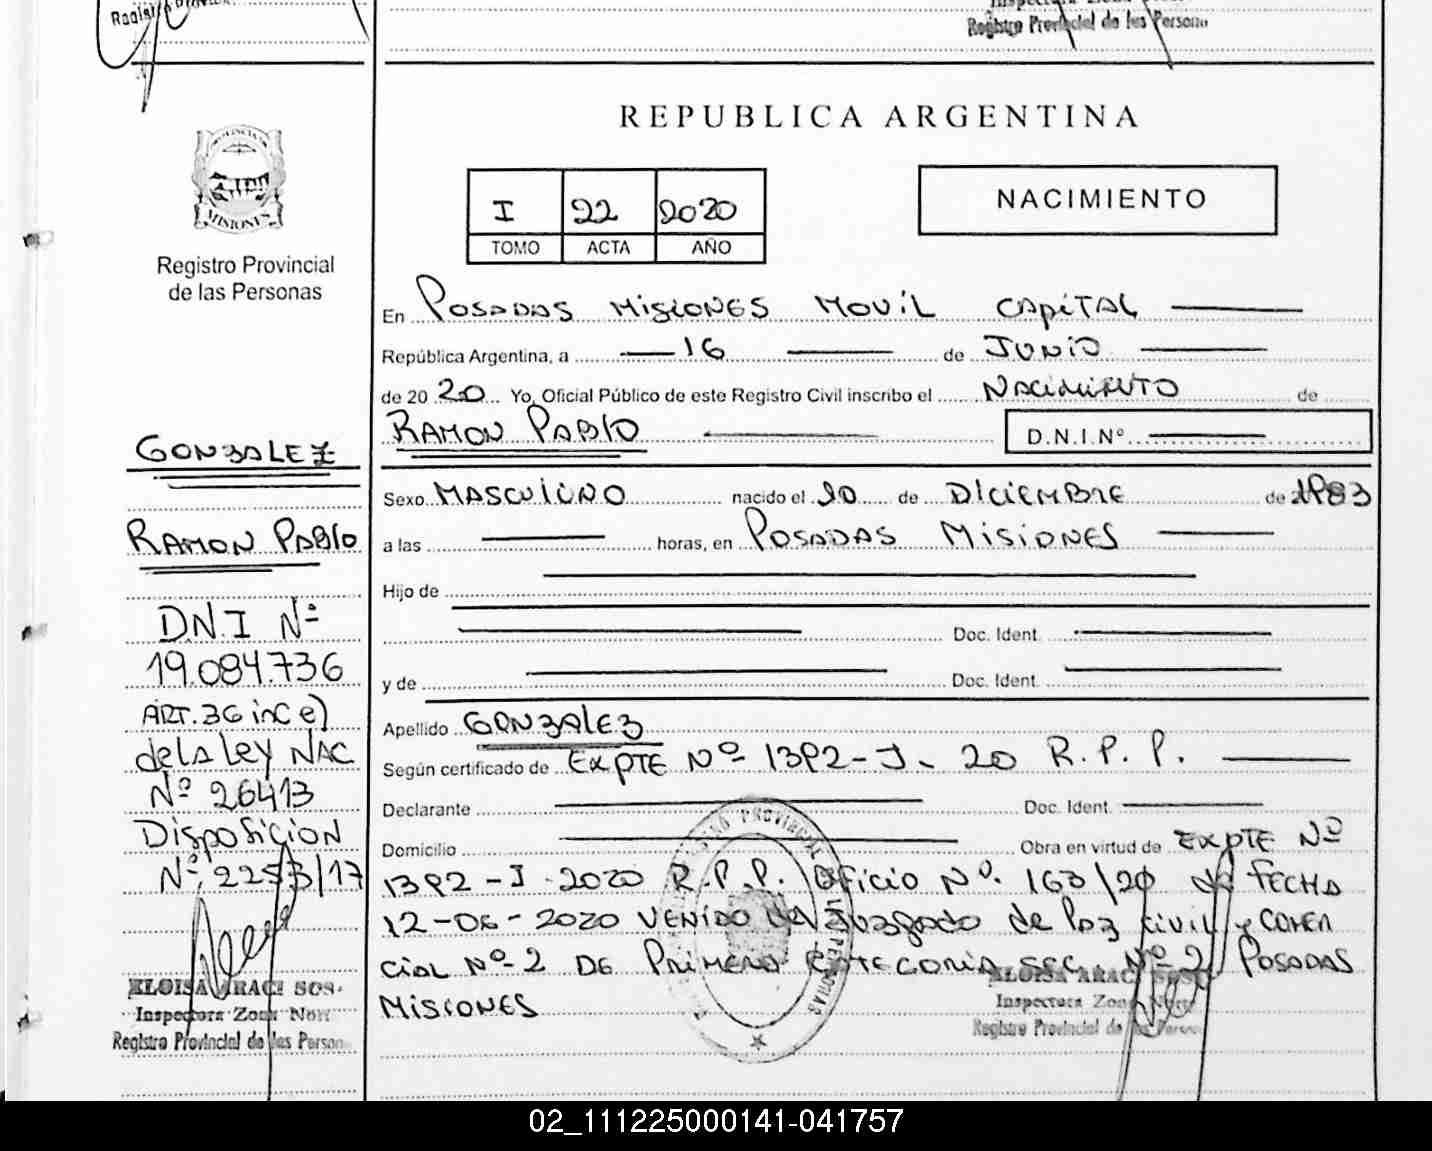 Registro Provincial de las Persona
REPUBLICA ARGENTINA
PROVINCIA
MISIONES
Registro Provincial
de las Personas
I 22 2020
TOMO ACTA AÑO
NACIMIENTO
En POSADAS MISIONES MOVIL CAPITAL
República Argentina, a 16 de JUNIO
de 20 20 Yo, Oficial Público de este Registro Civil inscribo el NACIMIENTO de
RAMON PABLO D.N.I.Nº
Sexo MASCULINO nacido el 30 de DICIEMBRE de 1983
a las horas, en POSADAS MISIONES
Hijo de
Doc. Ident.
y de Doc. Ident.
Apellido GONZALEZ
Según certificado de EXPTE Nº 1392-J- 20 R.P.P.
Declarante Doc. Ident.
Domicilio Obra en virtud de EXPTE Nº
1392-J-2020 R.P.P. Oficio Nº. 163/20 de FECHA
12-06-2020 VENIDO del Juzgado de Paz civil y COMER
CIAL Nº-2 DE PRIMERA CATEGORIA SEC. Nº 2 POSADAS
MISIONES
GONZALEZ
RAMON PABLO
D.N.I Nº
19.084.736
ART. 36 inc e)
de la Ley NAC
Nº 26413
Disposicion
Nº. 2253/17
ELOISA ARACI SOS
Inspectora Zona Norte
Registro Provincial de las Person
ELOISA ARACI SOS
Inspectora Zona Norte
Registro Provincial de las Person
02_111225000141-041757